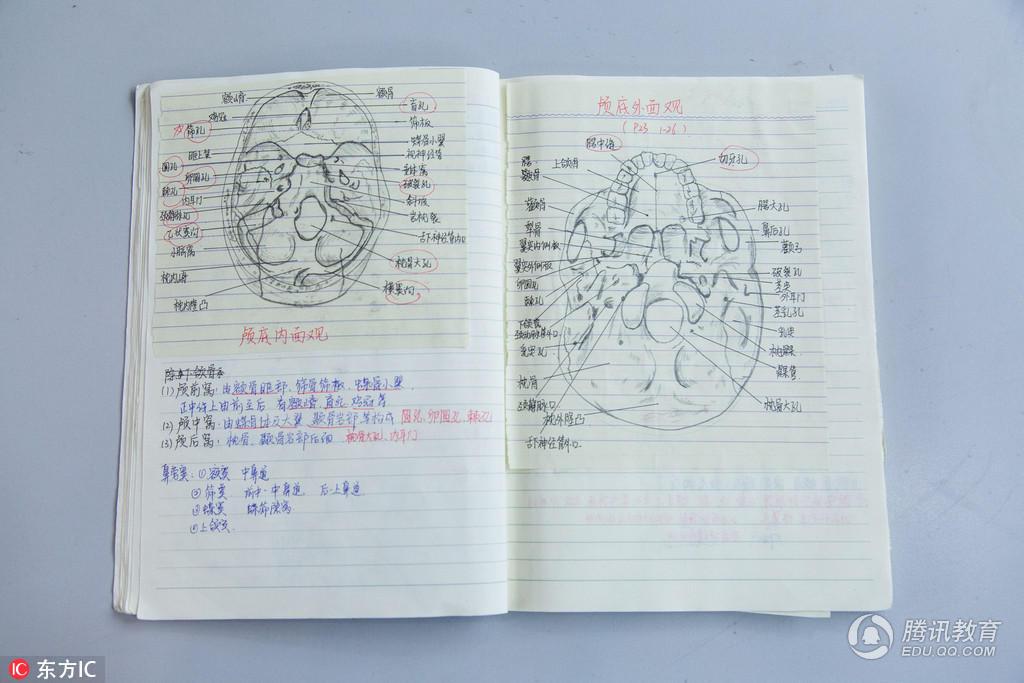 额嵴
额骨
鸡冠
盲孔
筛孔
筛板
蝶骨小翼
眶上裂
视神经管
圆孔
垂体窝
卵圆孔
破裂孔
棘孔
内耳门
斜坡
颈静脉孔
岩枕裂
乙状窦沟
舌下神经管内口
小脑窝
枕骨大孔
枕内嵴
横窦沟
枕内隆凸
颅底内面观
(1) 颅前窝：由额骨眶部、筛骨筛板、蝶骨小翼
正中线上由前至后 有额嵴、盲孔、鸡冠等
(2) 颅中窝：由蝶骨体及大翼 颞骨岩部等构成 圆孔、卵圆孔、棘孔
(3) 颅后窝：枕骨、颞骨岩部后面 枕骨大孔、内耳门
鼻旁窦：①额窦 中鼻道
②筛窦 前中-中鼻道 后-上鼻道
③蝶窦 蝶筛隐窝
④上颌窦
颅底外面观
(P23 1-26)
腭中缝
切牙孔
上颌骨
腭
颧骨
腭大孔
犁骨
鼻后孔
翼突内侧板
颧弓
翼突外侧板
卵圆孔
破裂孔
棘孔
茎突
外耳门
下颌窝
茎乳孔
颈动脉管外口
乳突
乳突孔
枕髁
髁管
枕骨
枕骨大孔
颈静脉孔
枕外隆凸
舌下神经管外口
腾讯教育
EDU.QQ.COM
IC 东方IC